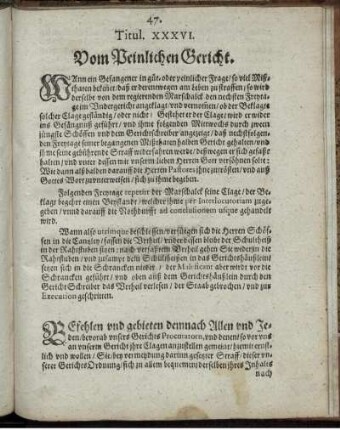 47.
Titul. XXXVI.
Vom Peinlichen Gericht.
WAnn ein Gefangener in güt- oder peinlicher Frage/ so viel Miß-
thaten bekönet/ daß er derentwegen am Leben zustraffen/ so wird
derselbe von dem regirenden Marschalck den nechsten Freyta-
ge im Undergericht angeklagt/ und vernommen/ ob der Beklagte
solcher Klage geständig/ oder nicht: Gestehet er der Klage/ wird er wieder
ins Gefängnuß geführt/ und ihme folgenden Mittwochs durch zween
jüngste Schöffen und dem Gerichtschreiber angezeigt/ daß nechstfolgen-
den Freytage seiner begangenen Mißthaten halben Gericht gehalten/ und
ihme seine gebührende Straff widerfahren werde/ deßwegen er sich gefasst
halten/ und unter dessen mit unserm lieben Herren Gott versöhnen solte:
Wie dann als balden darauff die Herren Pastores ihne zu trösten/ und auß
Gottes Wort zu unterweisen/ sich zu ihme begeben.
Folgenden Freytage repetirt der Marschalck seine Klage/ der Be-
klagte begehrt einen Beystandt/ welcher ihme per Interlocutoriam zuge-
geben/ und darauff die Nothdurfft ad conclusionem usque gehandelt
wird.
Wann also utrimque beschlossen/ verfügen sich die Herren Schöf-
fen in die Cantzley/ fassen die Urtheil/ unterdessen bleibt der Schultheiß
in der Rahtstuben sitzen: nach verfasstem Urtheil gehen Sie wider in die
Rahtstuben/ und zusampt dem Schultheißen in das Gerichtshäußlein/
setzen sich in die Schrancken nieder/ der Maleficant aber wirdt vor die
Schrancken geführt/ und oben auß dem Gerichtshäußlein durch den
Gericht Schreiber das Urtheil verlesen/ der Staab gebrochen/ und zur
Execution geschritten.
BEfehlen und gebieten demnach Allen und Je-
den/ bevorab unsers Gerichts Procuratorn, und denen so vor uns
an unserm Gericht ihre Klagen anzustellen gemeint/ hiemit ernst-
lich und wollen/ Sie/ bey vermeydung darinn gesetzter Straff/ dieser un-
serer Gerichts Ordnung/ sich zu allem bequemen/ derselben ihres Inhalts
nach